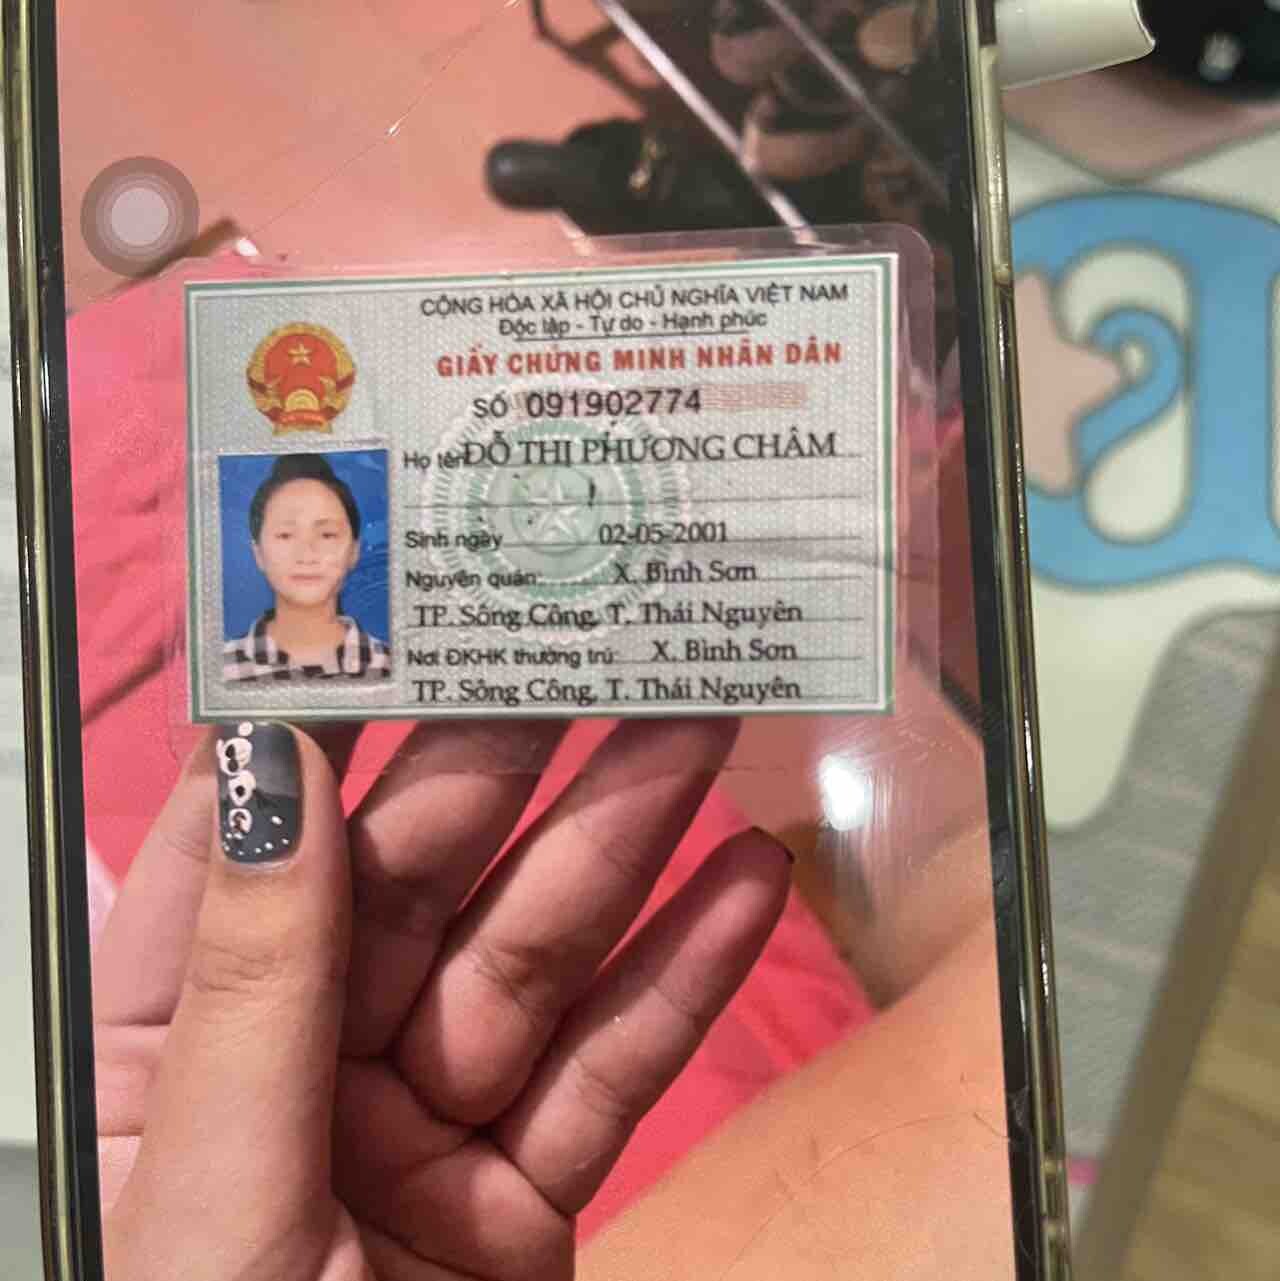 CỘNG HÒA XÃ HỘI CHỦ NGHĨA VIỆT NAM
Độc lập - Tự do - Hạnh phúc
GIẤY CHỨNG MINH NHÂN DÂN
SỐ 091902774
Họ tên ĐỖ THỊ PHƯƠNG CHÂM
Sinh ngày 02-05-2001
Nguyên quán: X. Bình Sơn
TP. Sông Công, T. Thái Nguyên
Nơi ĐKHK thường trú: X. Bình Sơn
TP. Sông Công, T. Thái Nguyên